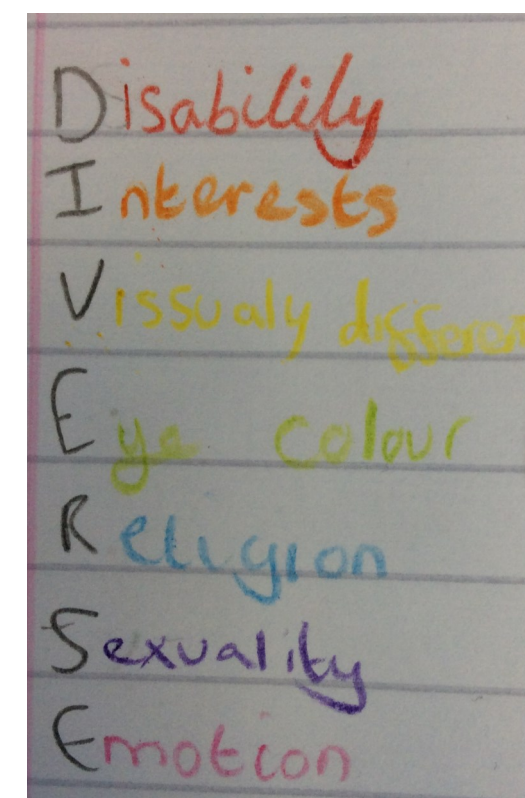 Disability
Interests
Vissualy differen
Eye colour
Religion
Sexuality
Emotion